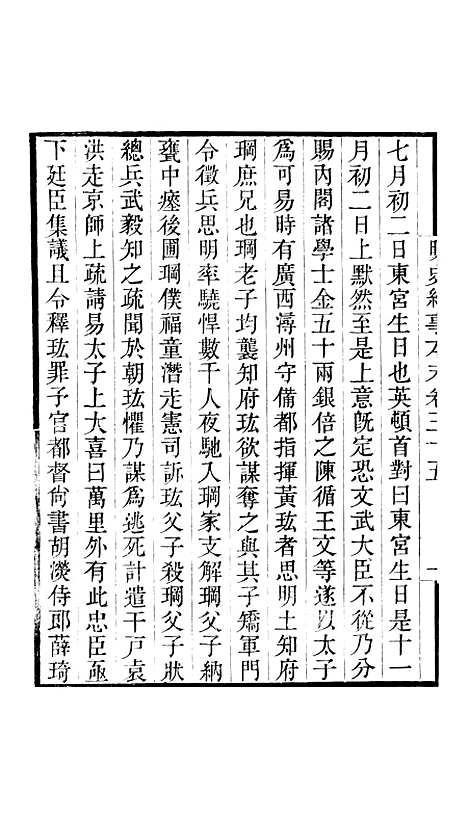 七月初二日東宮生日也英頓首對曰東宮生日是十一
月初二日上默然至是上意既定恐文武大臣不從乃分
賜內閣諸學士金五十兩銀倍之陳循王文等遂以太子
為可易時有廣西潯州守備都指揮黃玹者思明土知府
㻞庶兄也㻞老子均襲知府玹欲謀奪之與其子矯軍門
令徵兵思明率驍悍數千人夜馳入㻞家支解㻞父子納
甕中瘞後圃㻞僕福童潛走憲司訴玹父子殺㻞父子狀
總兵武毅知之疏聞於朝玹懼乃謀為逃死計遣千戶袁
洪走京師上疏請易太子上大喜曰萬里外有此忠臣亟
下廷臣集議且令釋玹罪予官都督尚書胡濙侍郎薛琦